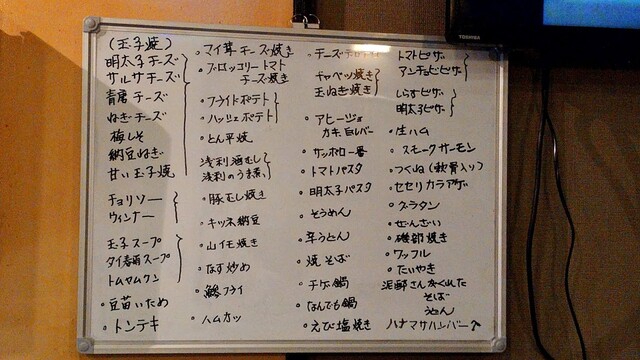 (玉子焼)
明太子チーズ
サルサチーズ
青唐チーズ
ねぎチーズ
梅しそ
納豆ねぎ
甘い玉子焼
チョリソー
ウィンナー
玉子スープ
タイ春雨スープ
トムヤムクン
・豆苗いため
・トンテキ
・マイ茸チーズ焼き
・ブロッコリートマト
チーズ焼き
・フライドポテト
・ハッシュポテト
・とん平焼
浅利酒むし
浅利のうま煮
・豚むし焼き
・キツネ納豆
・山イモ焼き
・なす炒め
・鯵フライ
・ハムカツ
・チーズ
キャベツ焼き
玉ねぎ焼き
・アヒージョ
カキ、白レバー
・サッポロ一番
・トマトパスタ
・明太子パスタ
・そうめん
・辛うどん
・焼そば
・チゲ鍋
・なんでも鍋
・えび塩焼き
トマトピザ
アンチョビピザ
しらすピザ
明太子ピザ
・生ハム
・スモークサーモン
・つくね(軟骨入り)
・セセリカラアゲ
・グラタン
・ぜんざい
・磯部焼き
・ワッフル
・たいやき
さんがくれた
そば
うどん
ハナマサハンバーグ
TOSHIBA